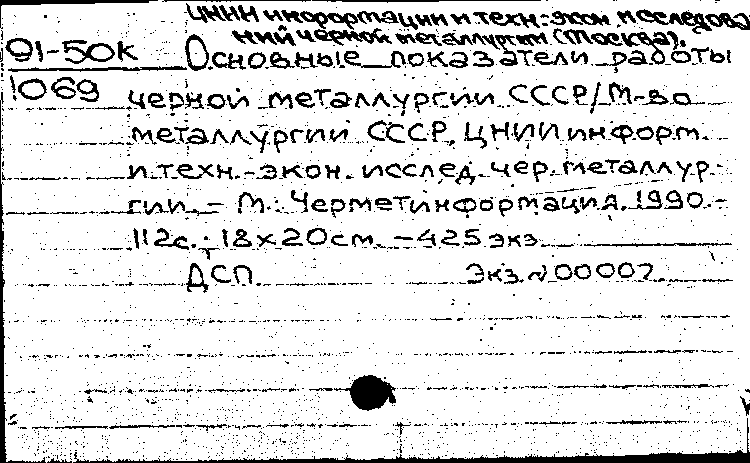 ЦНИИ информации и техн.-экон. исследова
ний черной металлургии (Москва).
91-50к Основные показатели работы
1069 черной металлургии СССР/М-во
металлургии СССР, ЦНИИ информ.
и техн.-экон. исслед. чер. металлур-
гии. - М.: Черметинформация, 1990.-
112с.; 18х20см. -425 экз.
ДСП. Экз.№00007.